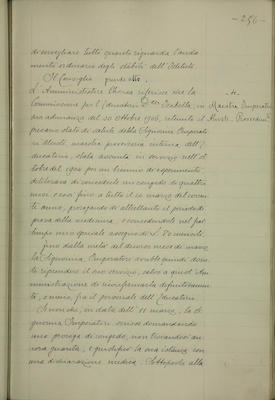 - 256 -
di sorvegliare tutto quanto riguarda l'anda-
mento ordinario degli stabili dell'Istituto.
Il Consiglio prende atto.
L'Amministratore riferisce che la
Commissione per l'Educatorio Isabella, in
adunanza del 30 Ottobre 1906, ritenuto il
precario stato di salute della Signorina Imperatori
maestra provvisoria interna dell'E-
ducatorio, stata assunta in servizio nell'ot-
tobre del 1904 per un triennio di esperimento
deliberava di concederle un congedo di quattro
mesi e cioè fino a tutto il 10 marzo del corren-
te anno, prorogando di altrettanto il periodo di
prova della medesima, e concedendole nel frat-
tempo uno speciale assegno di L. 80 mensili.
Fino dalla metà del decorso mese di marzo
la Signorina Imperatori avrebbe quindi dovu-
to riprendere il suo servizio, salvo a quest'Am-
ministrazione di riconfermarla definitivamen-
te, o meno, fra il personale dell'Educatorio
Senonché, in data dell'11 marzo, la Si-
gnorina Imperatori venne domandando
una proroga di congedo, non trovandosi an-
cora guarita, e giustificò la sua istanza con
una dichiarazione medica. Sottoposto alla